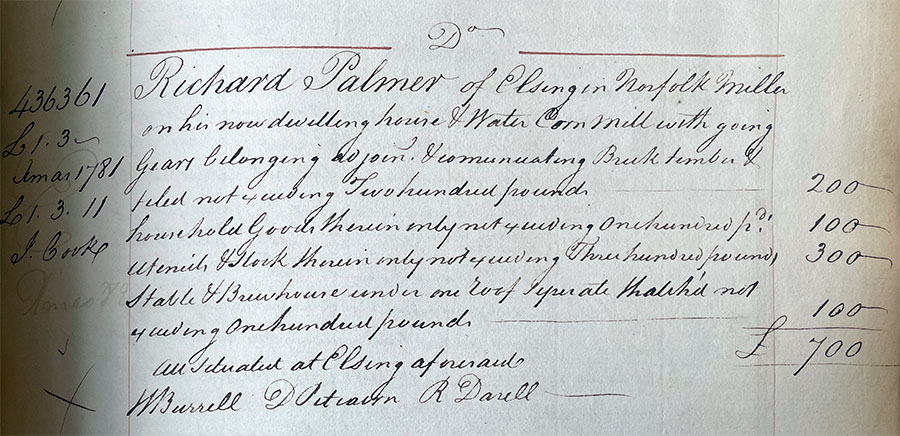 Do
436361
£1.3
Xmas 1781
£1.3.11
J. Cooke
Richard Palmer of Elsing in Norfolk Miller
on his now dwelling house & Water Corn Mill with going
Gears belonging adjoin.g & comunicating Brick timber &
tiled not exceeding Two hundred pounds 200
household Goods therein only not exceeding One hundred p.ds 100
Utensils & Stock therein only not exceeding Three hundred pounds 300
Stable & Brewhouse under one Roof Seperate thatch'd not
exceeding One hundred pounds 100
£ 700
All situated at Elsing aforesaid
W Burrell D R Darell